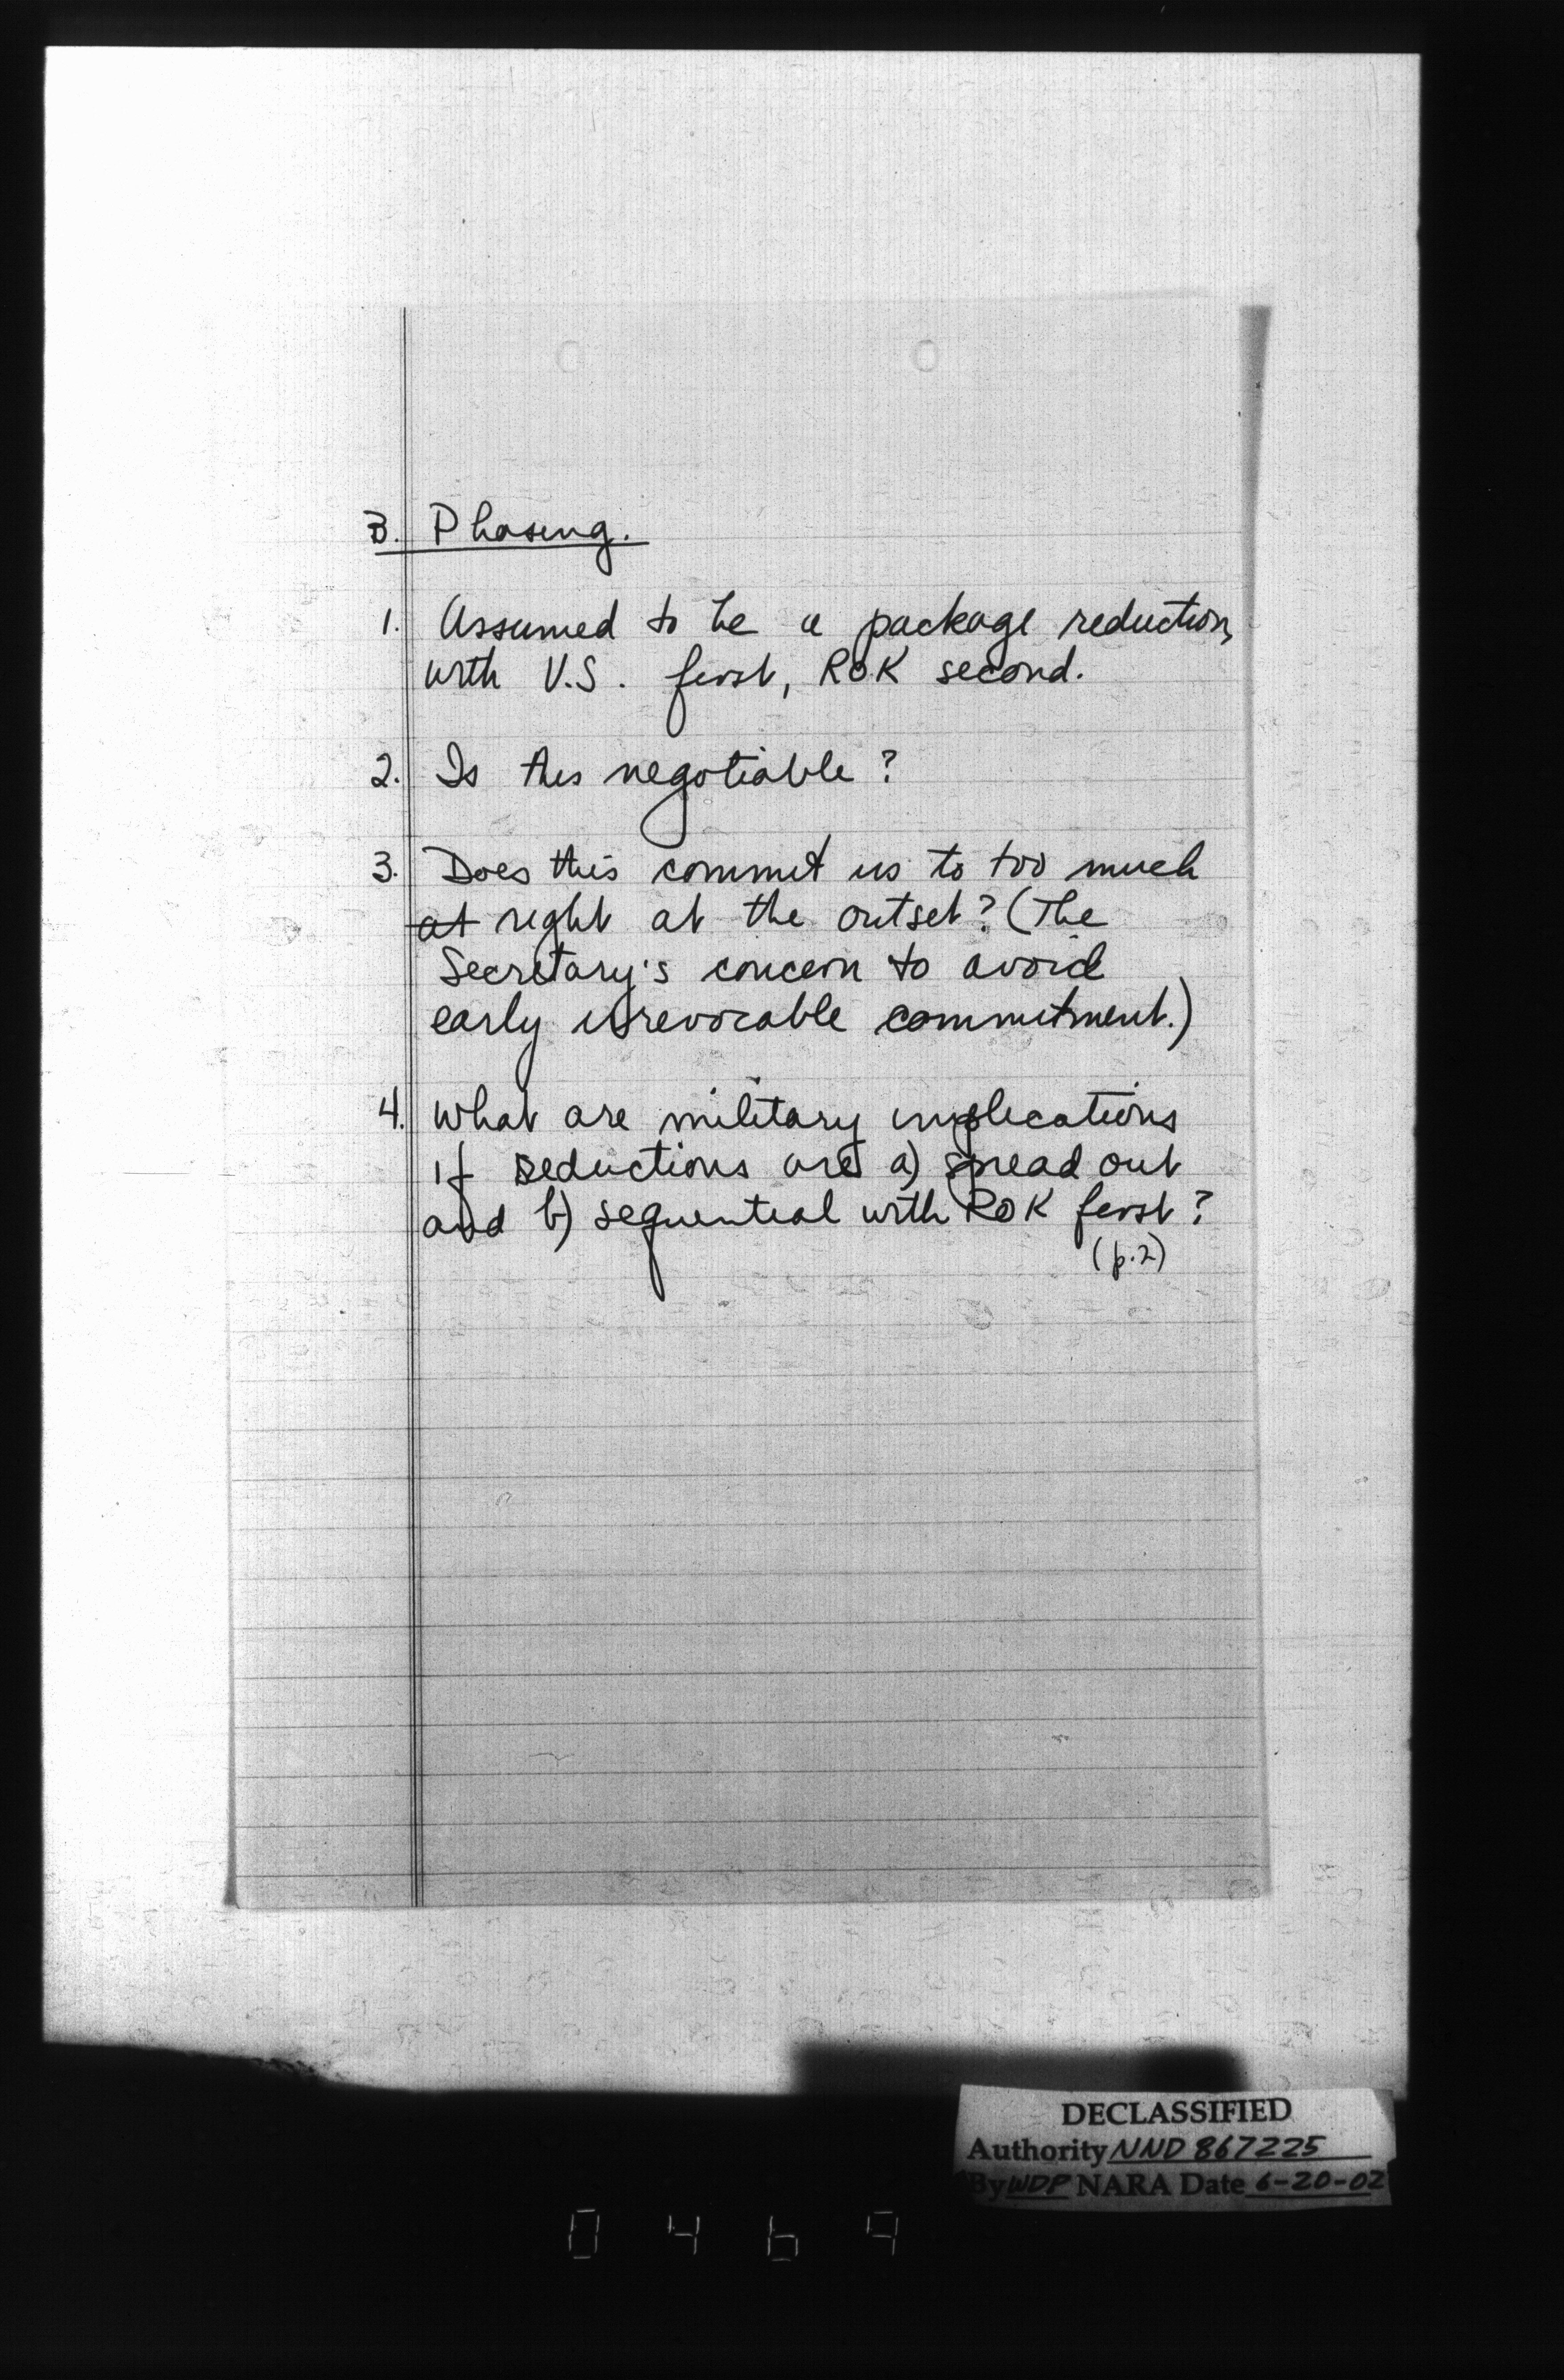 B. Phasing.
1. Assumed to be a package reduction,
with U.S. first, ROK second.
2. Is this negotiable?
3. Does this commit us to too much
at right at the outset? (The
Secretary's concern to avoid
early irrevocable commitment.)
4. What are military implications
if reductions are a) spread out
and b) sequential with ROK first?
(p.2)
DECLASSIFIED
Authority NND 867225
By WDP NARA Date 6-20-02
0469